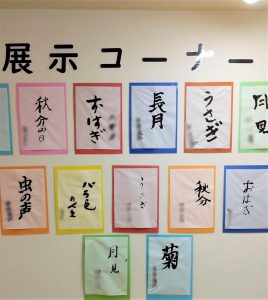 展示コーナー
秋分の日
おはぎ
長月
うさぎ
月見
虫の声
うさぎ
秋分
おはぎ
月見
菊